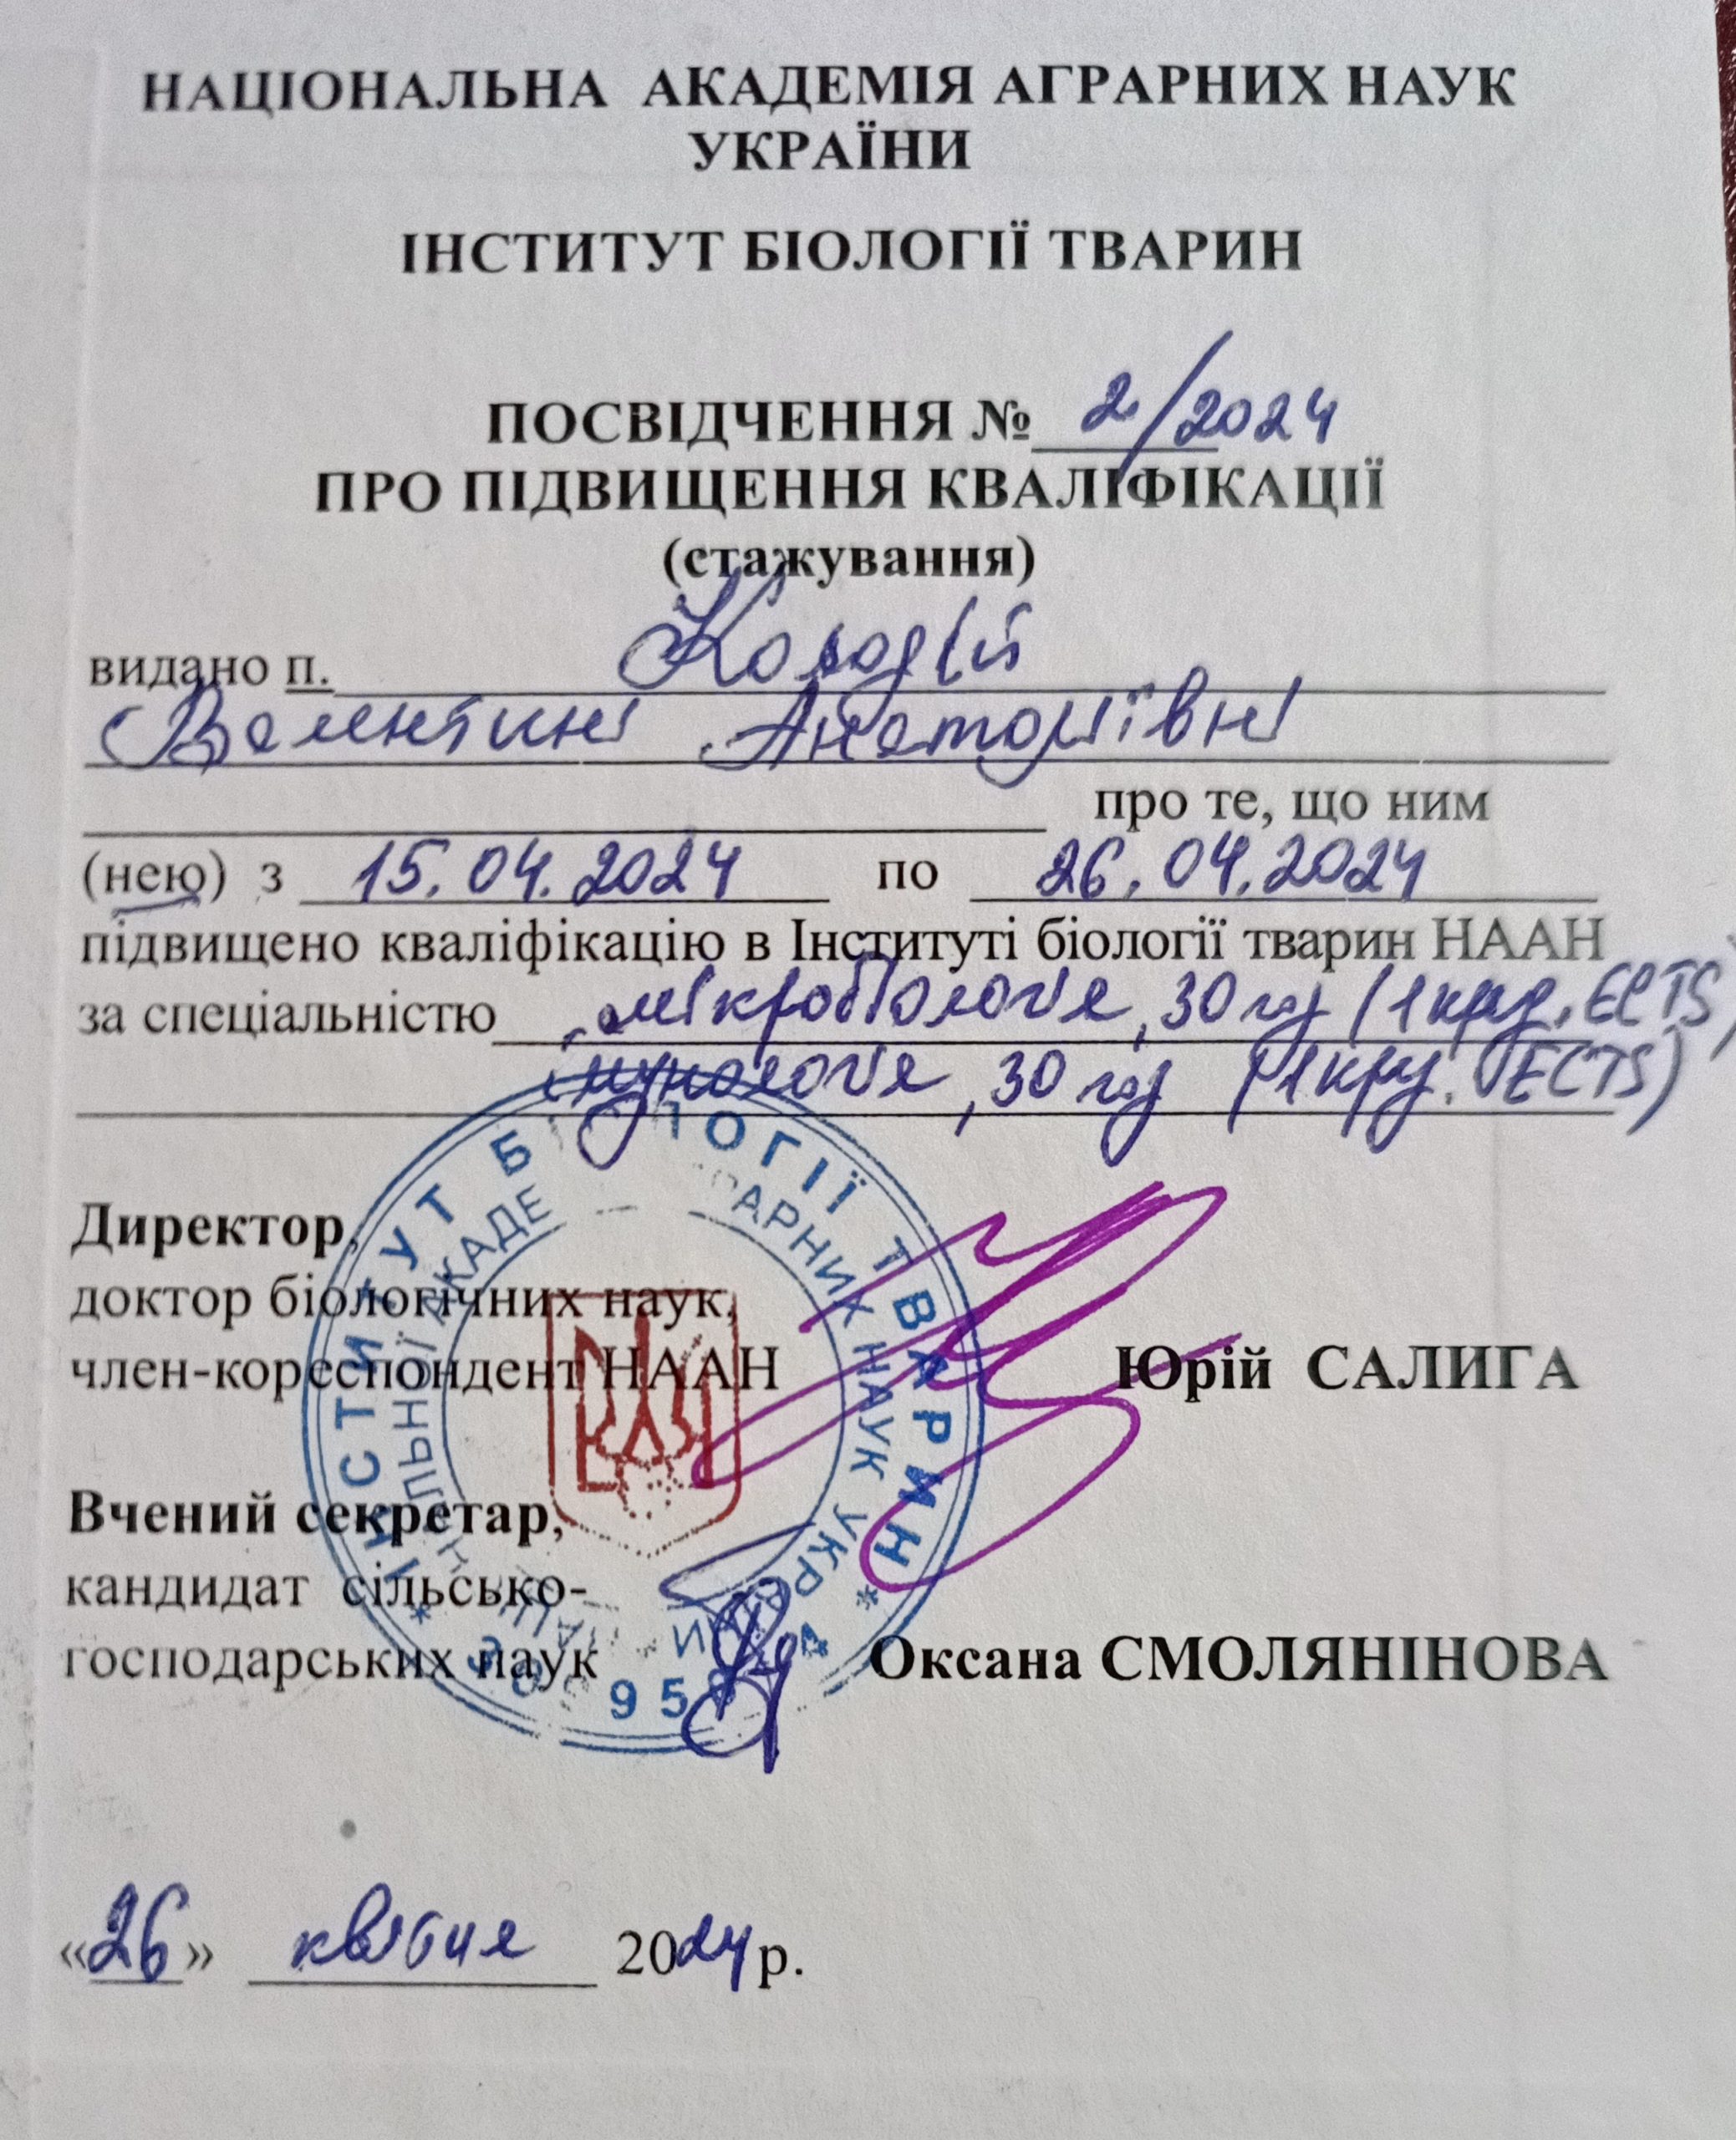 НАЦІОНАЛЬНА АКАДЕМІЯ АГРАРНИХ НАУК
УКРАЇНИ
ІНСТИТУТ БІОЛОГІЇ ТВАРИН
ПОСВІДЧЕННЯ № 2/2024
ПРО ПІДВИЩЕННЯ КВАЛІФІКАЦІЇ
(стажування)
видано п. Колодій
Валентині Анатоліївні
про те, що ним
(нею) з 15.04.2024 по 26.04.2024
підвищено кваліфікацію в Інституті біології тварин НААН
за спеціальністю мікробіологія, 30 год (1 кред. ECTS)
імунологія, 30 год (1 кред. ECTS)
Директор,
доктор біологічних наук,
член-кореспондент НААН Юрій САЛИГА
Вчений секретар,
кандидат сільсько-
господарських наук Оксана СМОЛЯНІНОВА
«26» квітня 2024 р.
ІНСТИТУТ БІОЛОГІЇ ТВАРИН